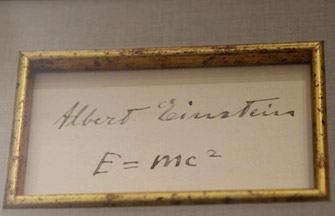 Albert Einstein
E = mc²